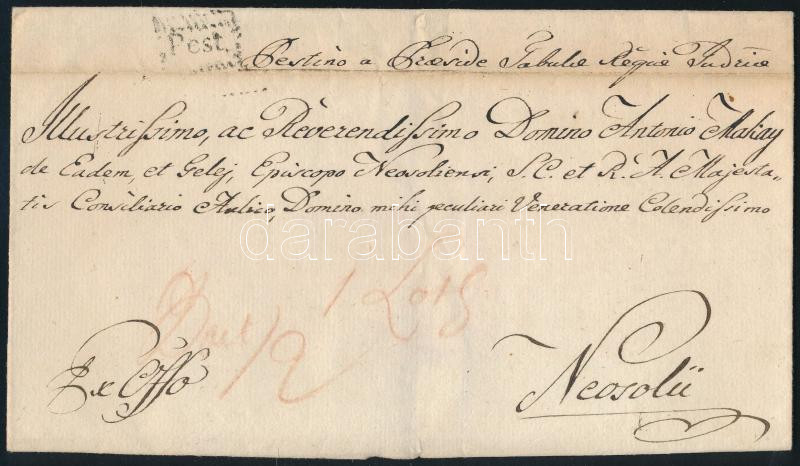 Pest.
Pestino a Præside Tabulæ Regiæ Judriæ
Illustrissimo, ac Reverendissimo Domino Antonio Makay
de Eadem, et Gelej, Episcopo Neosoliensi, S. C. et R. A. Majesta„
tis Consiliario Aulico, Domino mihi peculiari Veneratione Colendissimo
darabanth
1 Loth
12
Ex Offo
Neosolii